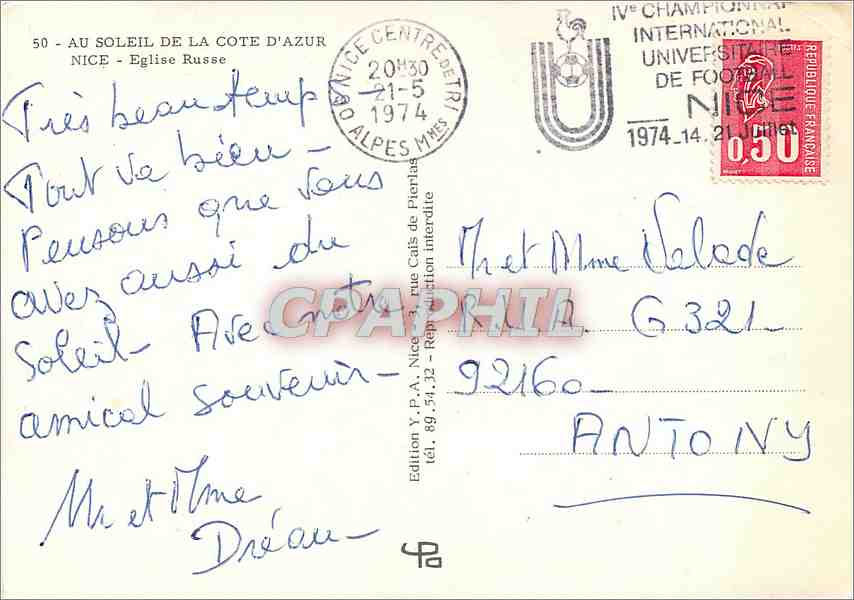 50 - AU SOLEIL DE LA COTE D'AZUR
NICE - Eglise Russe
Très beau temp
Tout va bien -
Pensons que vous
avez aussi du
soleil - Avec notre
amical souvenir -
Mr et Mme
Dréau -
NICE CENTRE de TRI
20H30
21-5
1974
06 ALPES MMES
IVe CHAMPIONNAT
INTERNATIONAL
UNIVERSITAIRE
DE FOOTBALL
NICE
1974_14.21 Juillet
REPUBLIQUE FRANÇAISE
0,50
Edition Y.P.A. Nice - 3, rue Caïs de Pierlas
tél. 89.54.32 - Reproduction interdite
Mr et Mme Valade
R.U.A. G 321
92160
ANTONY
CPAPHIL